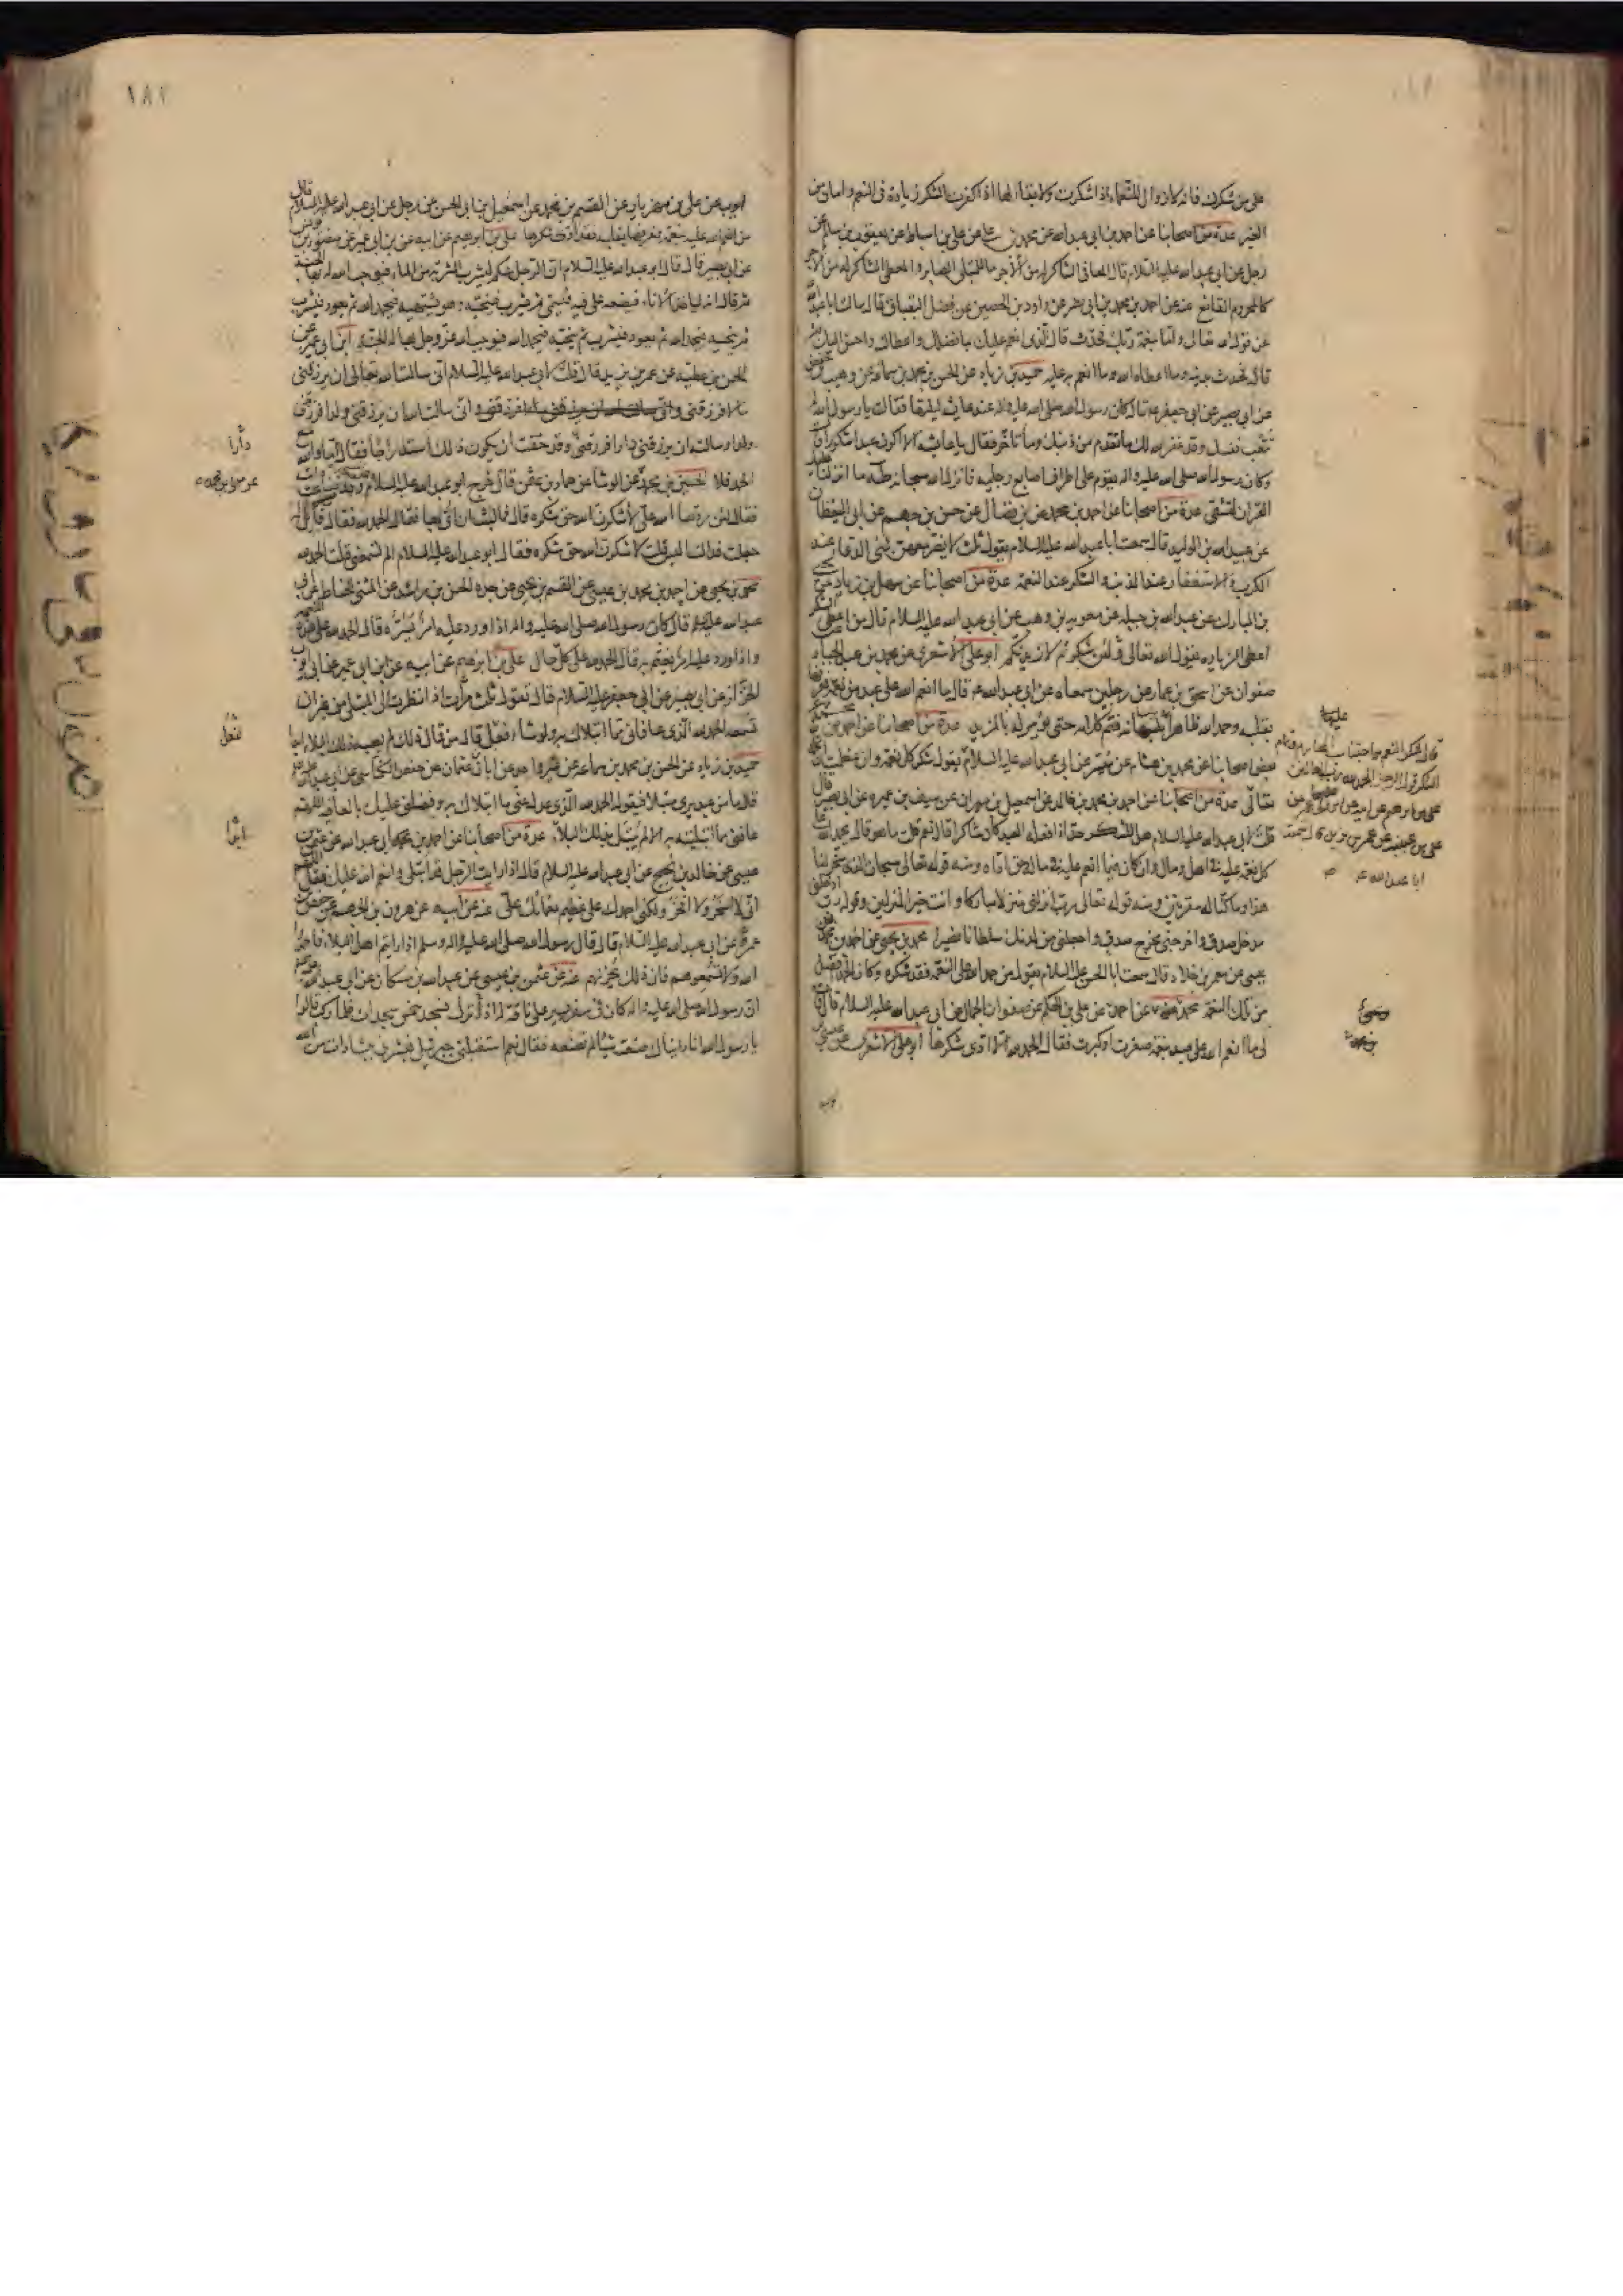 على من شكرك فانه لا زوال للنعماء اذا شكرت ولا بقاء لها اذا كفرت الشكر زيادة فى النعم وامان من
الغير عدة من اصحابنا عن احمد بن ابى عبد الله عن محمد بن على عن على بن اسباط عن يعقوب بن سالم عن
رجل عن ابى عبد الله عليه السلام قال المعافى الشاكر له من الاجر ما للمبتلى الصابر والمعطى الشاكر له من الاجر
كالمحروم القانع عنه عن احمد بن محمد بن ابى نصر عن داود بن الحصين عن فضل البقباق قال سالت ابا عبد الله
عن قول الله تعالى واما بنعمة ربك فحدث قال الذى انعم عليك بما فضلك واعطاك واحسن اليك ثم
قال فحدث بدينه وما اعطاه الله وما انعم به عليه حميد بن زياد عن الحسن بن محمد بن سماعة عن وهيب بن حفص
عن ابى بصير عن ابى جعفر ع قال كان رسول الله صلى الله عليه واله عند عايشه ليلتها فقالت يا رسول الله
تتعب نفسك وقد غفر الله لك ما تقدم من ذنبك وما تأخر فقال يا عايشه الا اكون عبدا شكورا قال
وكان رسول الله صلى الله عليه واله يقوم على اطراف اصابع رجليه فانزل الله سبحانه طه ما انزلنا عليك
القران لتشقى عدة من اصحابنا عن احمد بن محمد عن بن فضال عن حسن بن جهم عن ابى اليقظان
عن عبيد الله بن الوليد قال سمعت ابا عبد الله عليه السلام يقول ثلث لا يضر معهن شئ الدعاء عند
الكرب والاستغفار عند الذنب والشكر عند النعمة عدة من اصحابنا عن سهل بن زياد عن يحيى
بن المبارك عن عبد الله بن جبله عن معويه بن وهب عن ابى عبد الله عليه السلام قال من اعطى الشكر
اعطى الزياده يقول الله تعالى ولئن شكرتم لازيدنكم ابو على الاشعرى عن محمد بن عبد الجبار عن
صفوان عن اسحق بن عمار عن رجلين سمعاه عن ابى عبد الله ع قال ما انعم الله على عبد من نعمة فعرفها
بقلبه وحمد الله ظاهرا بلسانه فتم كلامه حتى يؤمر له بالمزيد عدة من اصحابنا عن احمد بن محمد عن
بعض اصحابنا عن محمد بن هشام عن ميسر عن ابى عبد الله عليه السلام يقول شكر كل نعمة وان عظمت ان تحمد الله
تعالى عدة من اصحابنا عن احمد بن محمد بن خالد عن اسمعيل بن مهران عن سيف بن عميره عن ابى بصير قال
قلت لابى عبد الله عليه السلام هل للشكر حد اذا فعله العبد كان شاكرا قال نعم قلت ما هو قال يحمد الله على
كل نعمة عليه فى اهل ومال وان كان فيما انعم عليه فى ماله حق اداه ومنه قوله تعالى سبحان الذى سخر لنا
هذا وما كنا له مقرنين ومنه قوله تعالى رب انزلنى منزلا مباركا وانت خير المنزلين وقوله رب ادخلنى
مدخل صدق واخرجنى مخرج صدق واجعل لى من لدنك سلطانا نصيرا محمد بن يحيى عن احمد بن محمد بن
عيسى عن معمر بن خلاد قال سمعت ابا الحسن عليه السلام يقول من حمد الله على النعمة فقد شكره وكان الحمد افضل
من تلك النعمة محمد عن احمد عن على بن الحكم عن صفوان الجمال عن ابى عبد الله عليه السلام قال قال
لى ما انعم الله على عبد بنعمة صغرت او كبرت فقال الحمد لله الا ادى شكرها ابو على الاشعرى عن عيسى بن
قال شكر النعم اجتناب المحارم وتمام
الشكر قول الرجل الحمد لله رب العالمين
على بن ابرهيم عن ابيه عن ابن ابى عمير عن
على بن عيينه عن عمر بن يزيد قال سمعت
ابا عبد الله ع
١٨٧
ايوب عن على بن مهزيار عن القسم بن محمد عن اسمعيل بن ابى الحسن عن رجل عن ابى عبد الله عليه السلام قال
من انعم الله عليه بنعمة فعرفها بقلبه فقد ادى شكرها على بن ابرهيم عن ابيه عن بن ابى عمير عن منصور بن يونس
عن ابى بصير قال قال ابو عبد الله عليه السلام ان الرجل منكم ليشرب الشربة من الماء فيوجب الله له بها الجنة
ثم قال انه لياخذ الاناء فيضعه على فيه فيسمى ثم يشرب فينحيه وهو يشتهيه فيحمد الله ثم يعود فيشرب
ثم ينحيه فيحمد الله ثم يعود فيشرب ثم ينحيه فيحمد الله فيوجب الله عز وجل بها له الجنة ابن ابى عمير عن
الحسن بن عطيه عن عمر بن يزيد قال قلت لابى عبد الله عليه السلام انى سالت الله تعالى ان يرزقنى
مالا فرزقنى وانى سالت الله ان يرزقنى ولدا فرزقنى
ولدا وسالته ان يرزقنى دارا فرزقنى وقد خفت ان يكون ذلك استدراجا فقال اما والله مع
الحمد فلا الحسين بن محمد عن الوشا عن حماد بن عثمن قال خرج ابو عبد الله عليه السلام من المسجد وقد ضاعت
فقال لئن ردها الله على لاشكرن الله حق شكره قال فما لبث ان اتى بها فقال الحمد لله فقال له قائل
جعلت فداك اليس قلت لاشكرن الله حق شكره فقال ابو عبد الله عليه السلام الم تسمعنى قلت الحمد لله
محمد بن يحيى عن احمد بن محمد بن عيسى عن القسم بن يحيى عن جده الحسن بن راشد عن المثنى الحناط عن ابى
عبد الله عليه السلام قال كان رسول الله صلى الله عليه واله اذا ورد عليه امر يسره قال الحمد لله على هذه النعمة
واذا ورد عليه امر يغتم به قال الحمد لله على كل حال على بن ابرهيم عن ابيه عن ابن ابى عمير عن ابى ايوب
الخزاز عن ابى بصير عن ابى جعفر عليه السلام قال تقول ثلث مرات اذا نظرت الى المبتلى من غير ان
تسمعه الحمد لله الذى عافانى مما ابتلاك به ولو شاء فعل قال من قال ذلك لم يصبه ذلك البلاء ابدا
حميد بن زياد عن الحسن بن محمد بن سماعه عن غير واحد عن ابان بن عثمان عن حفص الكناسى عن ابى عبد الله عليه السلام
قال ما من عبد يرى مبتلا فيقول الحمد لله الذى عدل عنى ما ابتلاك به وفضلنى عليك بالعافيه اللهم
عافنى مما ابتليته به الا لم يبتل بذلك البلاء عدة من اصحابنا عن احمد بن محمد ابى عبد الله عن عثمن بن
عيسى عن خالد بن نجيح عن ابى عبد الله عليه السلام قال اذا رايت الرجل قد ابتلى وانعم الله عليك فقل اللهم
انى لا اسخر ولا افخر ولكنى احمدك على عظيم نعمائك على عنه عن ابيه عن هرون بن الجهم عن حفص بن
عمر عن ابى عبد الله عليه السلام قال قال رسول الله صلى الله عليه واله وسلم اذا رايتم اهل البلاء فاحمدوا
الله ولا تسمعوهم فان ذلك يحزنهم عنه عن عثمن بن عيسى عن عبد الله بن مسكان عن ابى عبد الله ع قال
ان رسول الله صلى الله عليه واله كان فى سفر يسير على ناقة له اذ نزل فسجد خمس سجدات فلما ركب قالوا
يا رسول الله انا رايناك صنعت شيئا لم تصنعه فقال نعم استقبلنى جبرئيل فبشرنى بشارات من الله
دارا